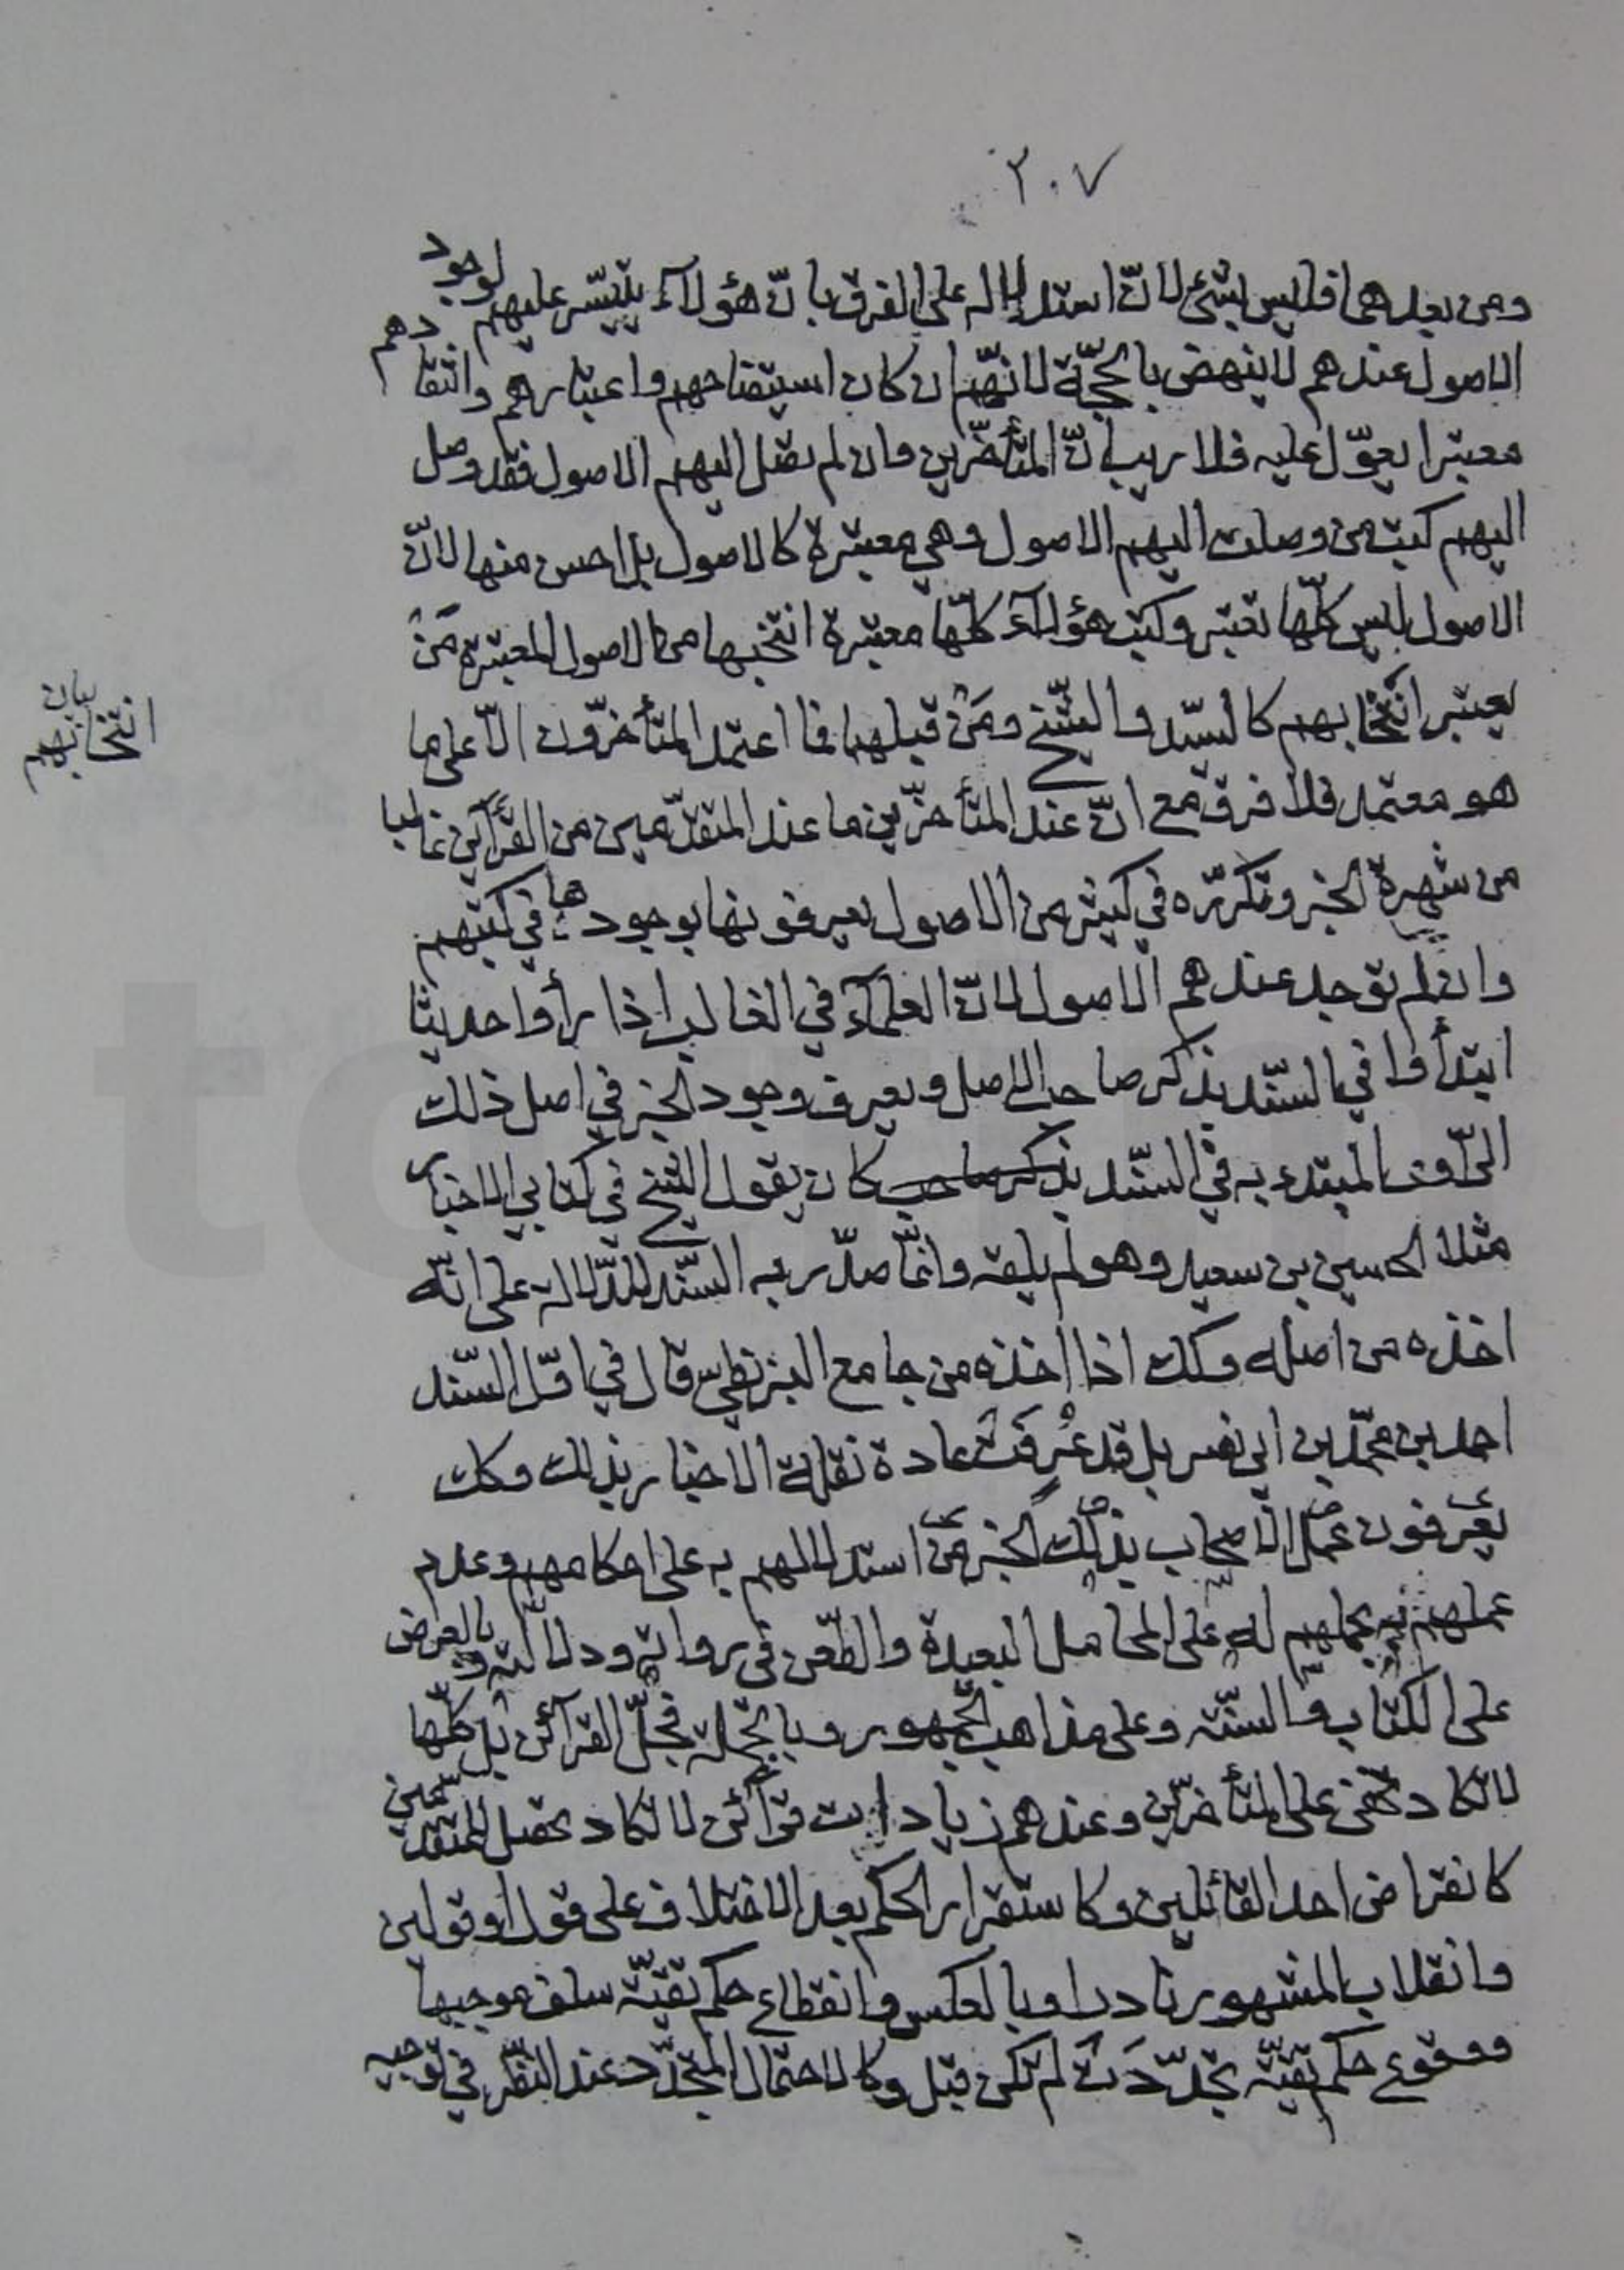 ٢٠٧
ومن بعدهما فليس بشئ لانّ استدلاله على الفرق بانّ هؤلآء يتيسّر عليهم لوجود
الاصول عندهم لاينهض بالحجّة لانّهم ان كان استيضاحهم واعتبارهم وانتقادهم
معتبرا يعوّل عليه فلا ريب انّ المتأخّرين وان لم تصل اليهم الاصول فقد وصل
اليهم كتب من وصلت اليهم الاصول وهي معتبرة كالاصول بل احسن منها لانّ
الاصول ليس كلّها تعتبر وكتب هؤلآء كلّها معتبرة انتخبها من الاصول المعتبرة مَنْ
يعتبر انتخابهم كالسيّد والشّيخ ومَنْ قبلهما فما اعتمد المتأخّرون الّا على ما
بيان
انتخابهم
هو معتمد فلا فرق مع انّ عند المتأخّرين ما عند المتقدّمين من القرآئن غالبا
من شهرة الخبر وتكرّره في كثير من الاصول يعرفونها بوجودها في كتبهم
وان لم توجد عندهم الاصول لانّ العلمآء في الغالب اذا رأوا حديثا
ابتدأوا في السّند بذكر صاحب الاصل ويعرف وجود الخبر في اصل ذلك
الرّاوى المبتدء به في السّند بذكر صاحب كان يقول الشّيخ في كتابي الاخبار
مثلا الحسين بن سعيد وهو لم يلقه وانّما صدّر به السّند للدّلالة على انّه
اخذه من اصله وكك اذا اخذه من جامع البزنطي قال في اوّل السّند
احمد بن محمّد بن ابي نصر بل قد عُرِفَتْ عادة نقلة الاخبار بذلك وكك
يعرفون عمل الاصحاب بذلك الخبر من استدلالهم به على احكامهم وعدم
عملهم به بحملهم له على المحامل البعيدة والطّعن في رواته ودلالته وبالعرض
على الكتاب والسنّة وعلى مذاهب الجمهور وبالجملة فجلّ القرآئن بل كلّها
لا تكاد تخفى على المتأخّرين وعندهم زيادات قرآئن لا تكاد تحصل للمتقدّمين
كانقراض احد القائلين وكاستقرار الحكم بعد الاختلاف على قول او قولين
وانقلاب المشهور نادرا وبالعكس وانقطاع حكم تقيّة سلف موجبها
ووقوع حكم تقيّة تجدّدَتْ لم تكن قبل وكالاحتمال المتجدّد عند النّظر في توجيه